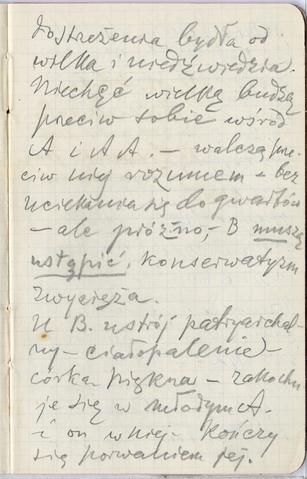 dostrzeżenia bydła od
wilka i niedźwiedzia.
Niechęć wielką budzą
przeciw sobie wśród
A i AA. – walczą prze-
ciw niej rozumem – bez
uciekania się do gwałtów
– ale próżno, – B muszą
ustąpić, konserwatyzm
zwycięża.
U B. ustrój patryarchal-
ny – ciałopalenie –
córka piękna – zakochu-
je się w młodym A.
i on w niej. Kończy
się porwaniem jej.